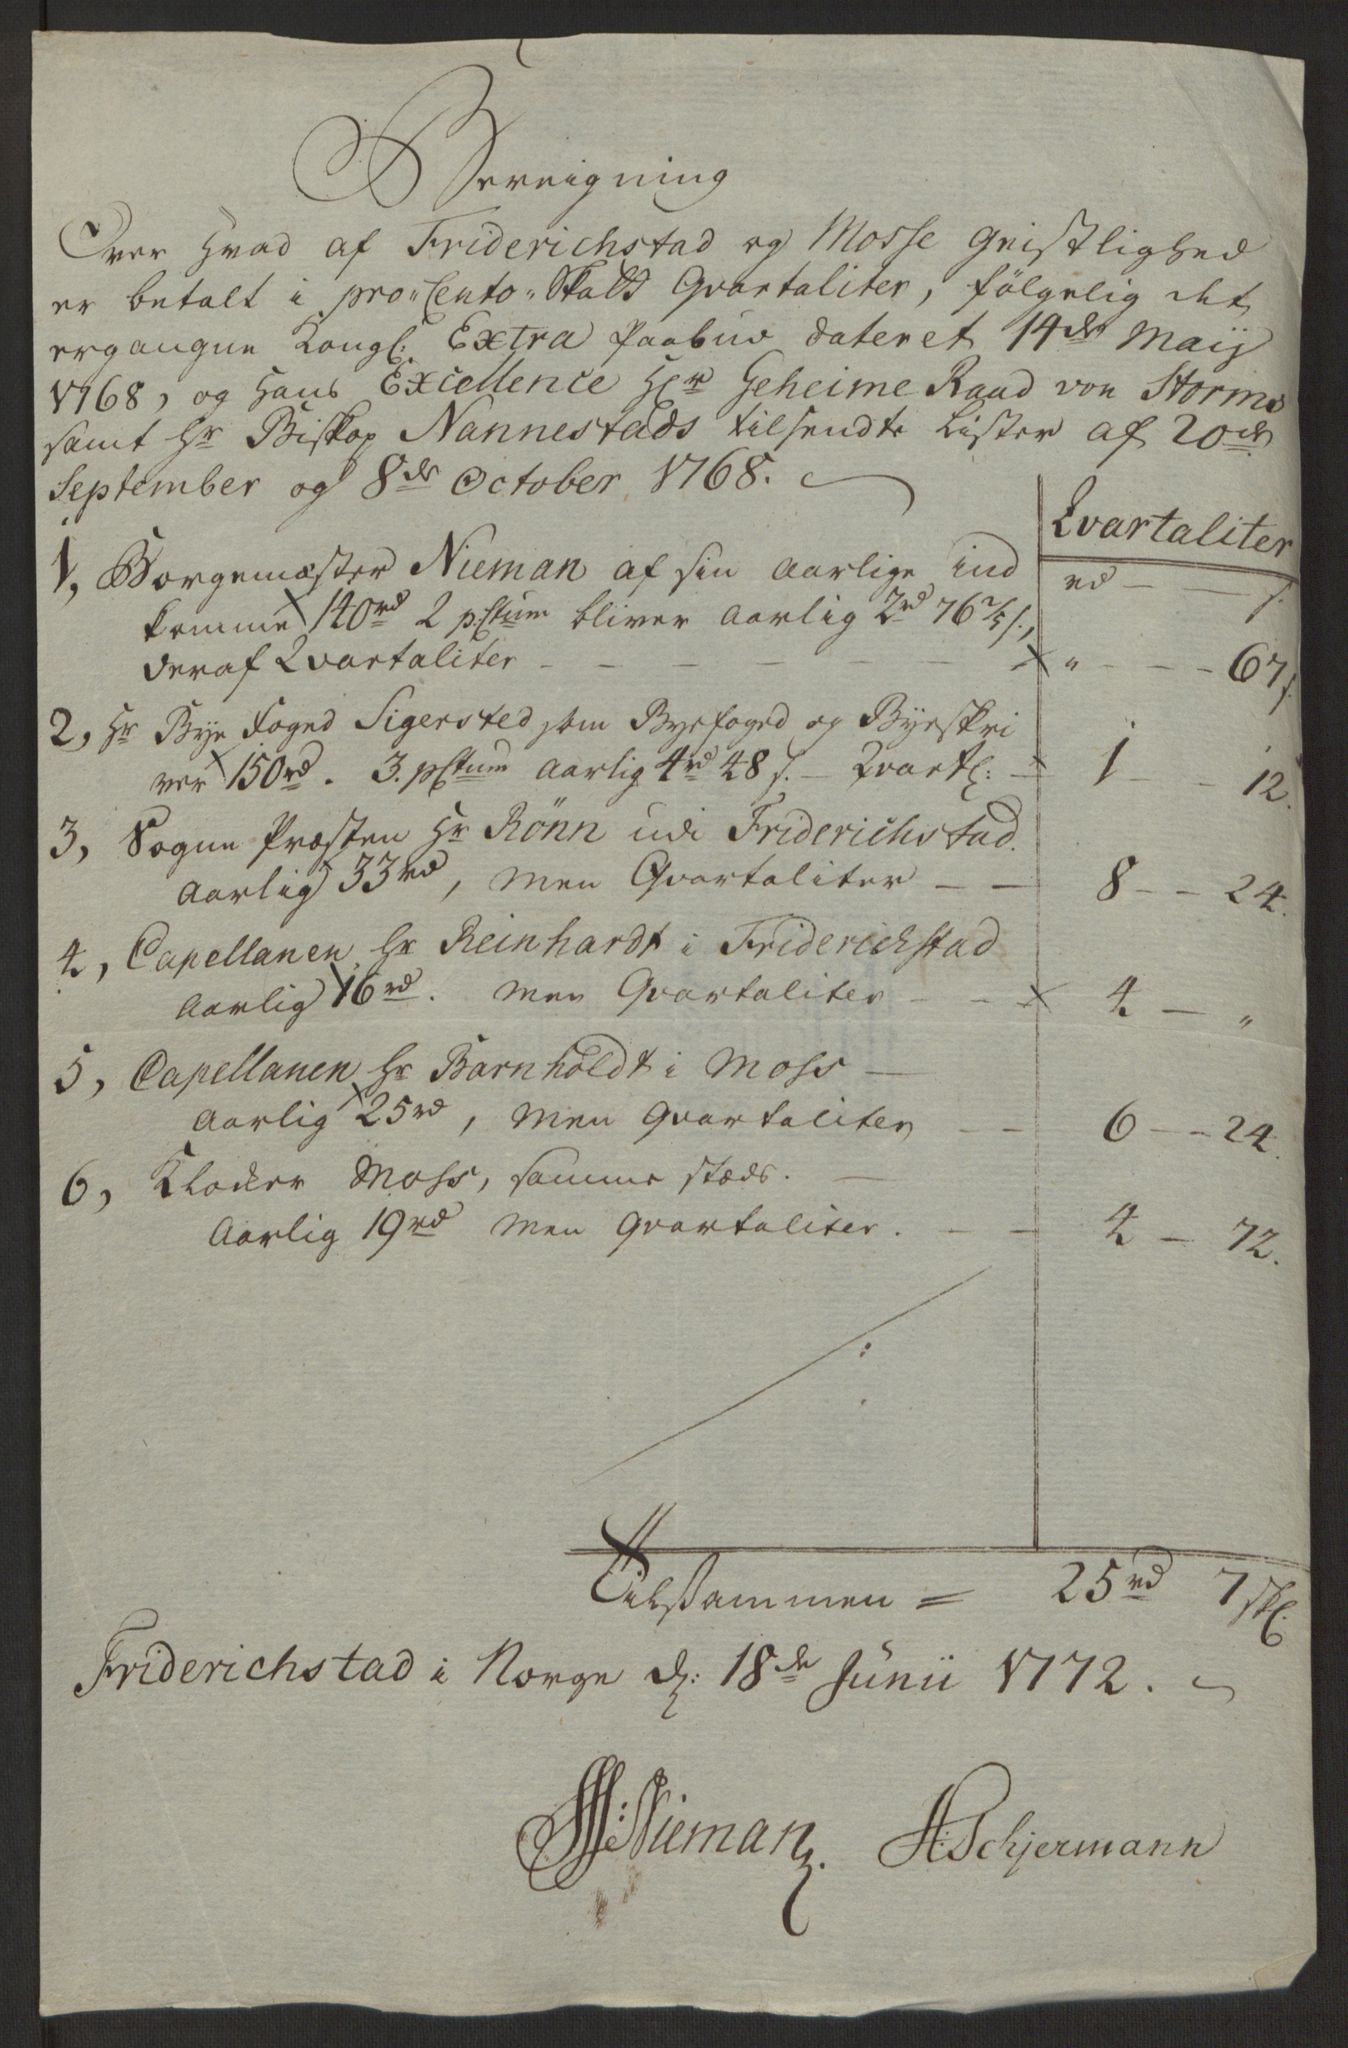 Bereigning
Over hvad af Friderichstad og Mosse Geistlighed
er betalt i pro Cento Skatt Qvartaliter, fölgelig det
ergangne Kongl: Extra Paabud dateret 14de Maij
1768, og Hans Excellence Hr Geheime Raad von Storms
samt Hr Biskop Nannestads tilsendte Lister af 20de
September og 8de October 1768.
Qvartaliter
rd — s.
1, Borgemæster Nieman af sin aarlige ind
komme 140rd 2 p.Ctum bliver aarlig 2rd 76 4/5 s.,
deraf Qvartaliter — — — — — " — — 67 s.
2, Hr Bye Foged Sigersted som Byefoged og Byeskri
ver 150rd. 3. pCtum aarlig 4rd 48 s. — Qvartl: — 1 — — 12.
3, Sogne Præsten Hr Rönn udi Friderichstad.
aarlig 33rd, men Qvartaliter — — 8 — — 24.
4, Capellanen Hr Reinhardt i Friderichstad
aarlig 16rd. men Qvartaliter — — 4 — "
5, Capellanen Hr Barnholdt i Moss —
aarlig 25rd, men Qvartaliter — — 6 — — 24.
6, Klocker Moss, samme stæds. —
aarlig 19rd men Qvartaliter. — — 4 — 72.
Tilsammen = 25rd 7 sk.
Friderichstad i Norge d: 18de Junii 1772.
Nieman. A: Schjermann